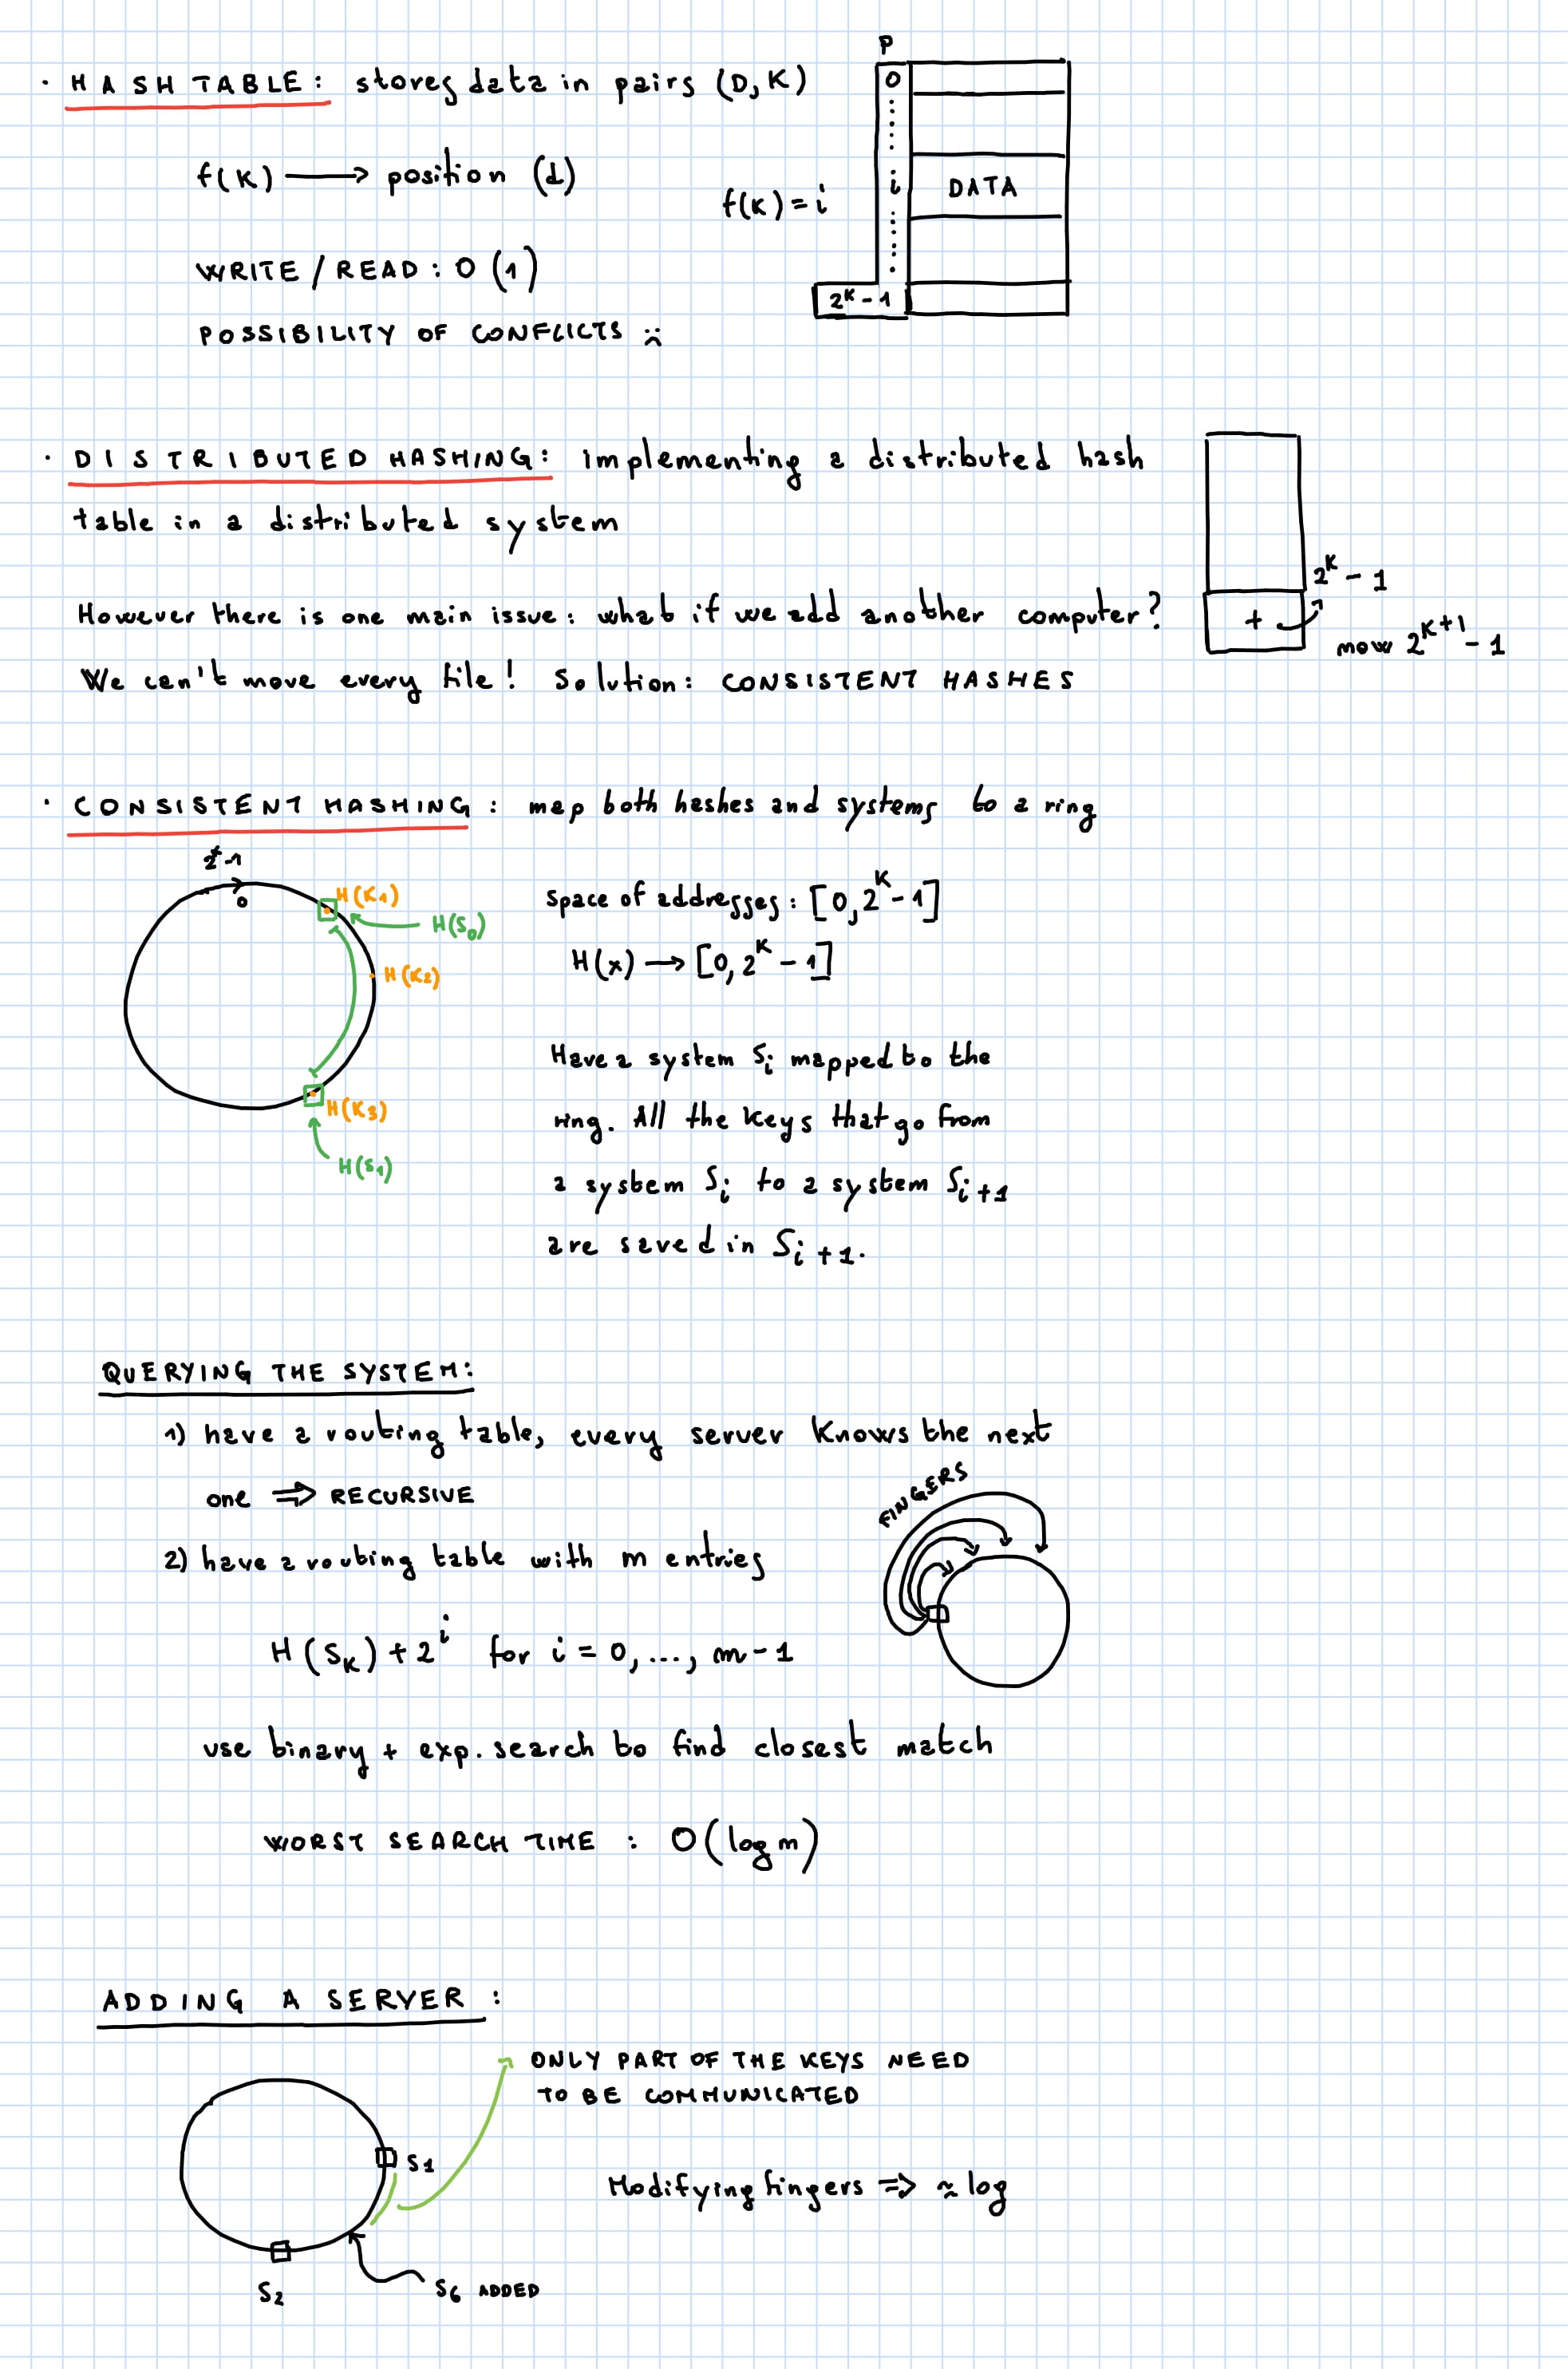 · HASH TABLE: stores data in pairs (D, K)
f(K) ⟶ position (d)
WRITE / READ : O (1)
POSSIBILITY OF CONFLICTS :(
P
0
f(K) = i
i
DATA
2^K - 1
· DISTRIBUTED HASHING: implementing a distributed hash
table in a distributed system
However there is one main issue: what if we add another computer?
We can't move every file! Solution: CONSISTENT HASHES
2^K - 1
+
now 2^K+1 - 1
· CONSISTENT HASHING : map both hashes and systems to a ring
2^K-1
0
H(K1)
H(S0)
H(K2)
H(K3)
H(S1)
space of addresses : [0, 2^K - 1]
H(x) ⟶ [0, 2^K - 1]
Have a system Si mapped to the
ring. All the keys that go from
a system Si to a system Si+1
are saved in Si+1.
QUERYING THE SYSTEM:
1) have a routing table, every server knows the next
one ⇒ RECURSIVE
2) have a routing table with n entries
FINGERS
H(SK) + 2^i for i = 0, ..., n-1
use binary + exp. search to find closest match
WORST SEARCH TIME : O(log n)
ADDING A SERVER :
ONLY PART OF THE KEYS NEED
TO BE COMMUNICATED
S1
Modifying fingers => ≈ log
S2
S6 ADDED